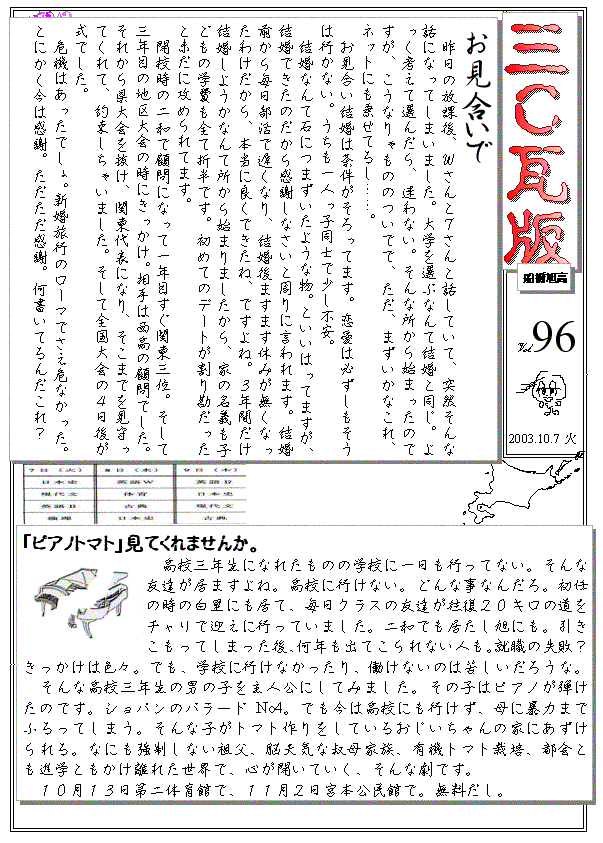 三C瓦版
船橋旭高
Vol.96
2003.10.7 火
お見合いで
昨日の放課後、WさんとTさんと話していて、突然そんな
話になってしまいました。大学を選ぶなんて結婚と同じ。よ
っく考えて選んだら、迷わない。そんな所から始まったので
すが、こうなりゃもののついでで、ただ、まずいかなこれ、
ネットにも乗せてるし……。
お見合い結婚は条件がそろってます。恋愛は必ずしもそう
は行かない。うちも一人っ子同士で少し不安。
結婚なんて石につまずいたような物。といいはってますが、
結婚できたのだから感謝しなさいと周りに言われます。結婚
前から毎日部活で遅くなり、結婚後ますます休みが無くなっ
たわけだから、本当に良くできたね、ですよね。3年間だけ
結婚しようかなんて所から始まりましたから、家の名義も子
どもの学費も全て折半です。初めてのデートが割り勘だった
と未だに攻められてます。
開校時の二和で顧問になって一年目すぐ関東三位。そして
三年目の地区大会の時にきっかけ。相手は西高の顧問でした。
それから県大会を抜け、関東代表になり、そこまでを見守っ
てくれて、約束しちゃいました。そして全国大会の4日後が
式でした。
危機はあったでしょ。新婚旅行のローマでさえ危なかった。
とにかく今は感謝。ただただ感謝。何書いてるんだこれ?
7日(火) 8日(水) 9日(木)
日本史 英語W 英語R
現代文 体育 日本史
英語R 古典 現代文
倫理 日本史 古典
「ピアノトマト」見てくれませんか。
高校三年生になれたものの学校に一日も行ってない。そんな
友達が居ますよね。高校に行けない。どんな事なんだろ。初任
の時の白里にも居て、毎日クラスの友達が往復20キロの道を
チャリで迎えに行っていました。二和でも居たし旭にも。引き
こもってしまった後、何年も出てこられない人も。就職の失敗?
きっかけは色々。でも、学校に行けなかったり、働けないのは苦しいだろうな。
そんな高校三年生の男の子を主人公にしてみました。その子はピアノが弾け
たのです。ショパンのバラード No4。でも今は高校にも行けず、母に暴力まで
ふるってしまう。そんな子がトマト作りをしているおじいちゃんの家にあずけ
られる。なにも強制しない祖父、脳天気な叔母家族、有機トマト栽培、都会と
も進学ともかけ離れた世界で、心が開いていく、そんな劇です。
10月13日第二体育館で、11月2日宮本公民館で。無料だし。